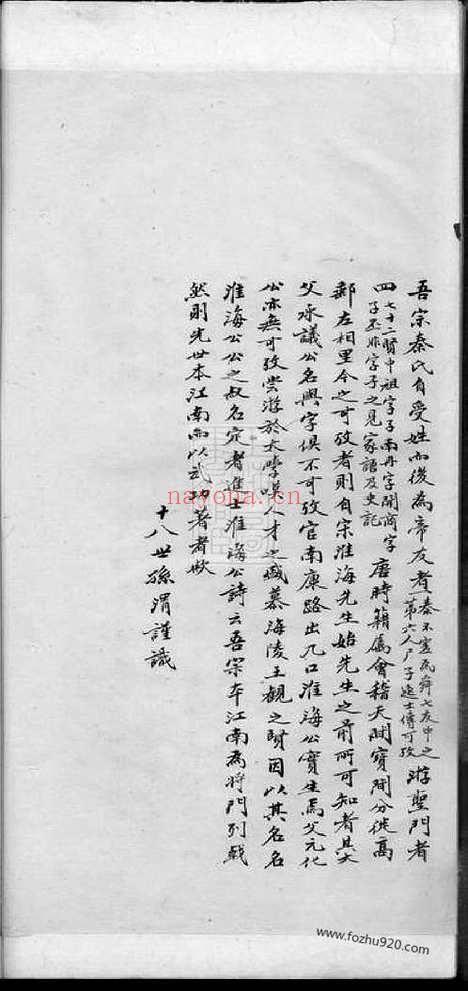 吾宗秦氏自受姓而後為帝友者秦不虛為舜七友中之第六人尸子逸士傳可攷游聖門者
四七十二賢中祖字子南冉字開商字子丕非字子之見家語及史記唐時籍屬會稽天開寶間分徙高
郵左相里今之可攷者則自宋淮海先生始先生之前所可知者其大
父承議公名與字俱不可攷官南康路出九口淮海公實生焉父元化
公亦無可攷嘗游於太學嘆人才之盛慕海陵王觀之賢因以其名名
淮海公公之叔名定者進士淮海公詩云吾宗本江南為將門列戟
然則先世本江南而以武功著者歟
十八世孫渭謹識
nayona.cn
www.fozhu920.com